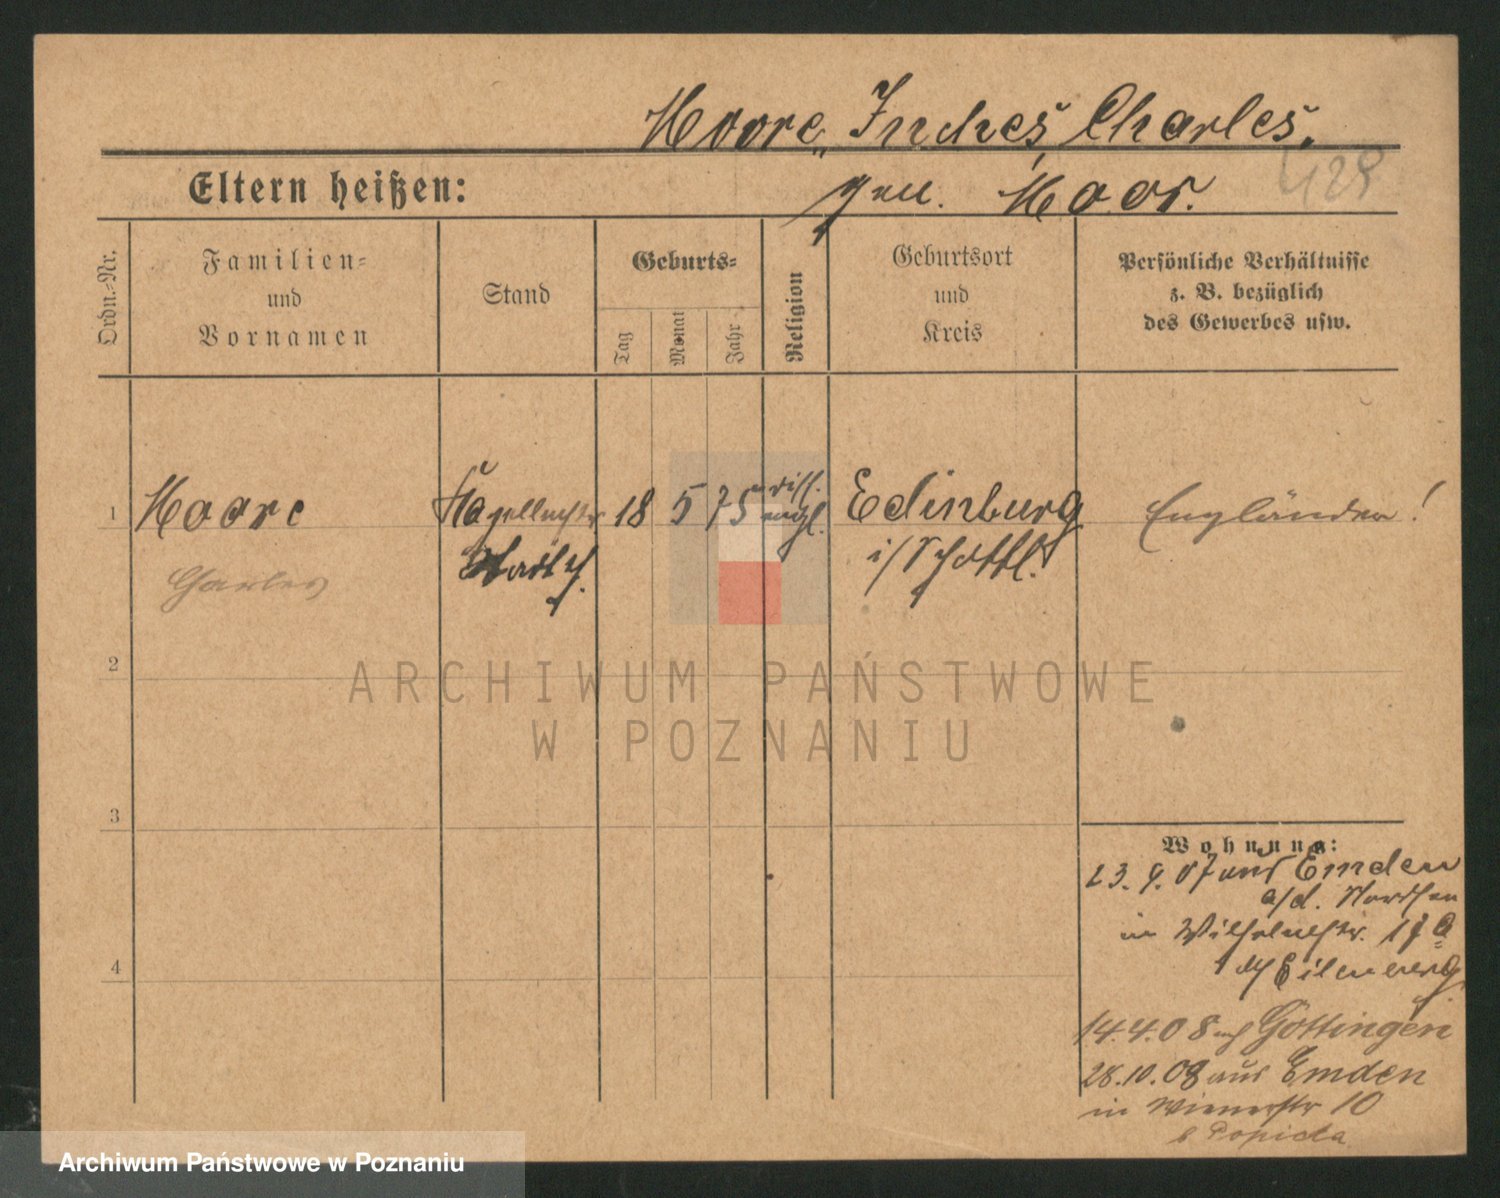 Moore, Inches Charles.
Eltern heißen: gen. Moor.
429
Ordn.-Nr.
Familien-
und
Vornamen
Stand
Geburts-
Tag
Monat
Jahr
Religion
Geburtsort
und
Kreis
Persönliche Verhältnisse
z. B. bezüglich
des Gewerbes usw.
1 Moore 18 5 75 engl. Edinburg Engländer!
Charles i/Schottl.
ARCHIWUM PAŃSTWOWE
W POZNANIU
2
3
4
Wohnung:
23. 9. 07 aus Emden
a/d.
in Wilhelmstr. 17a
14.4.08 nach Göttingen
28.10.08 aus Emden
in Wienerstr 10
b Popicta
Archiwum Państwowe w Poznaniu